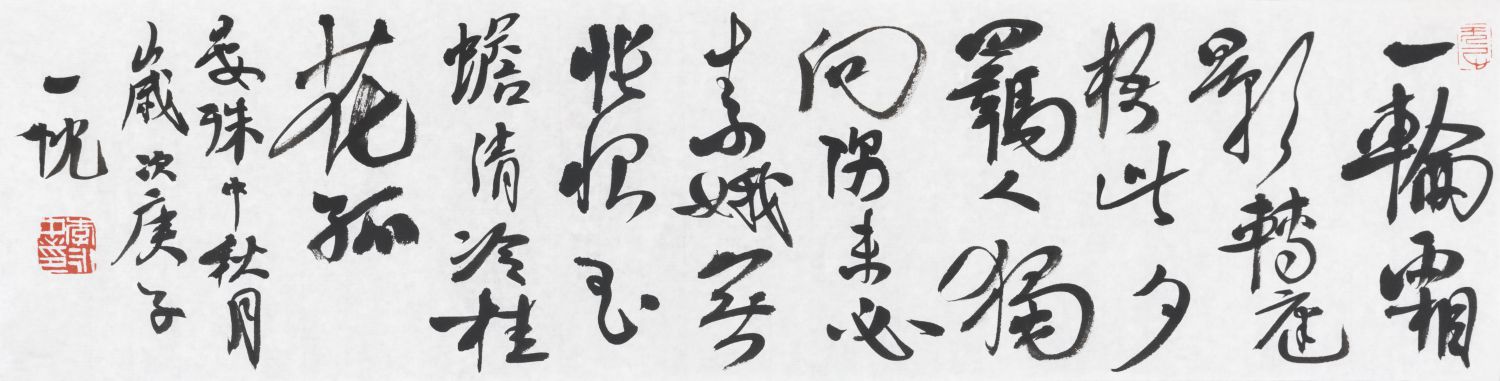 一輪霜
影轉庭
梧此夕
羈人獨
向隅未必
素娥無
悵恨玉
蟾清冷桂
花孤
晏殊中秋月
歲次庚子
一忱